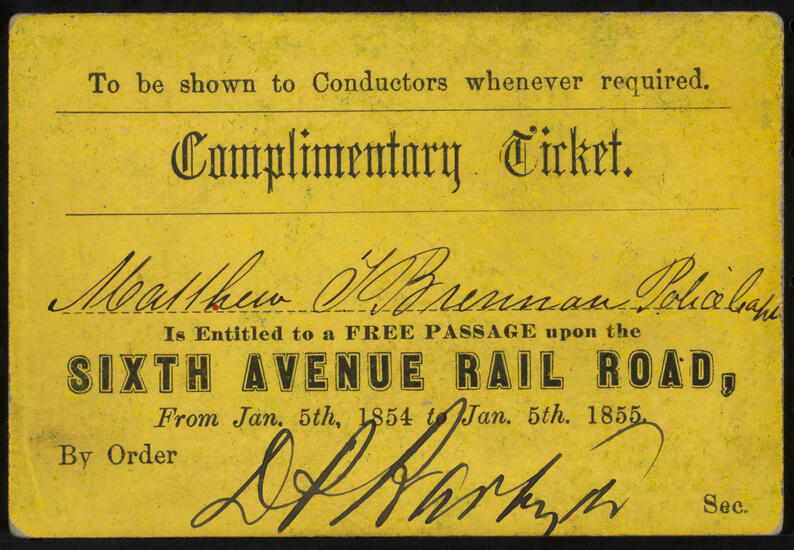 To be shown to Conductors whenever required.
Complimentary Ticket.
Matthew T Brennan Police Capt
Is Entitled to a FREE PASSAGE upon the
SIXTH AVENUE RAIL ROAD,
From Jan. 5th, 1854 to Jan. 5th. 1855.
By Order
Sec.